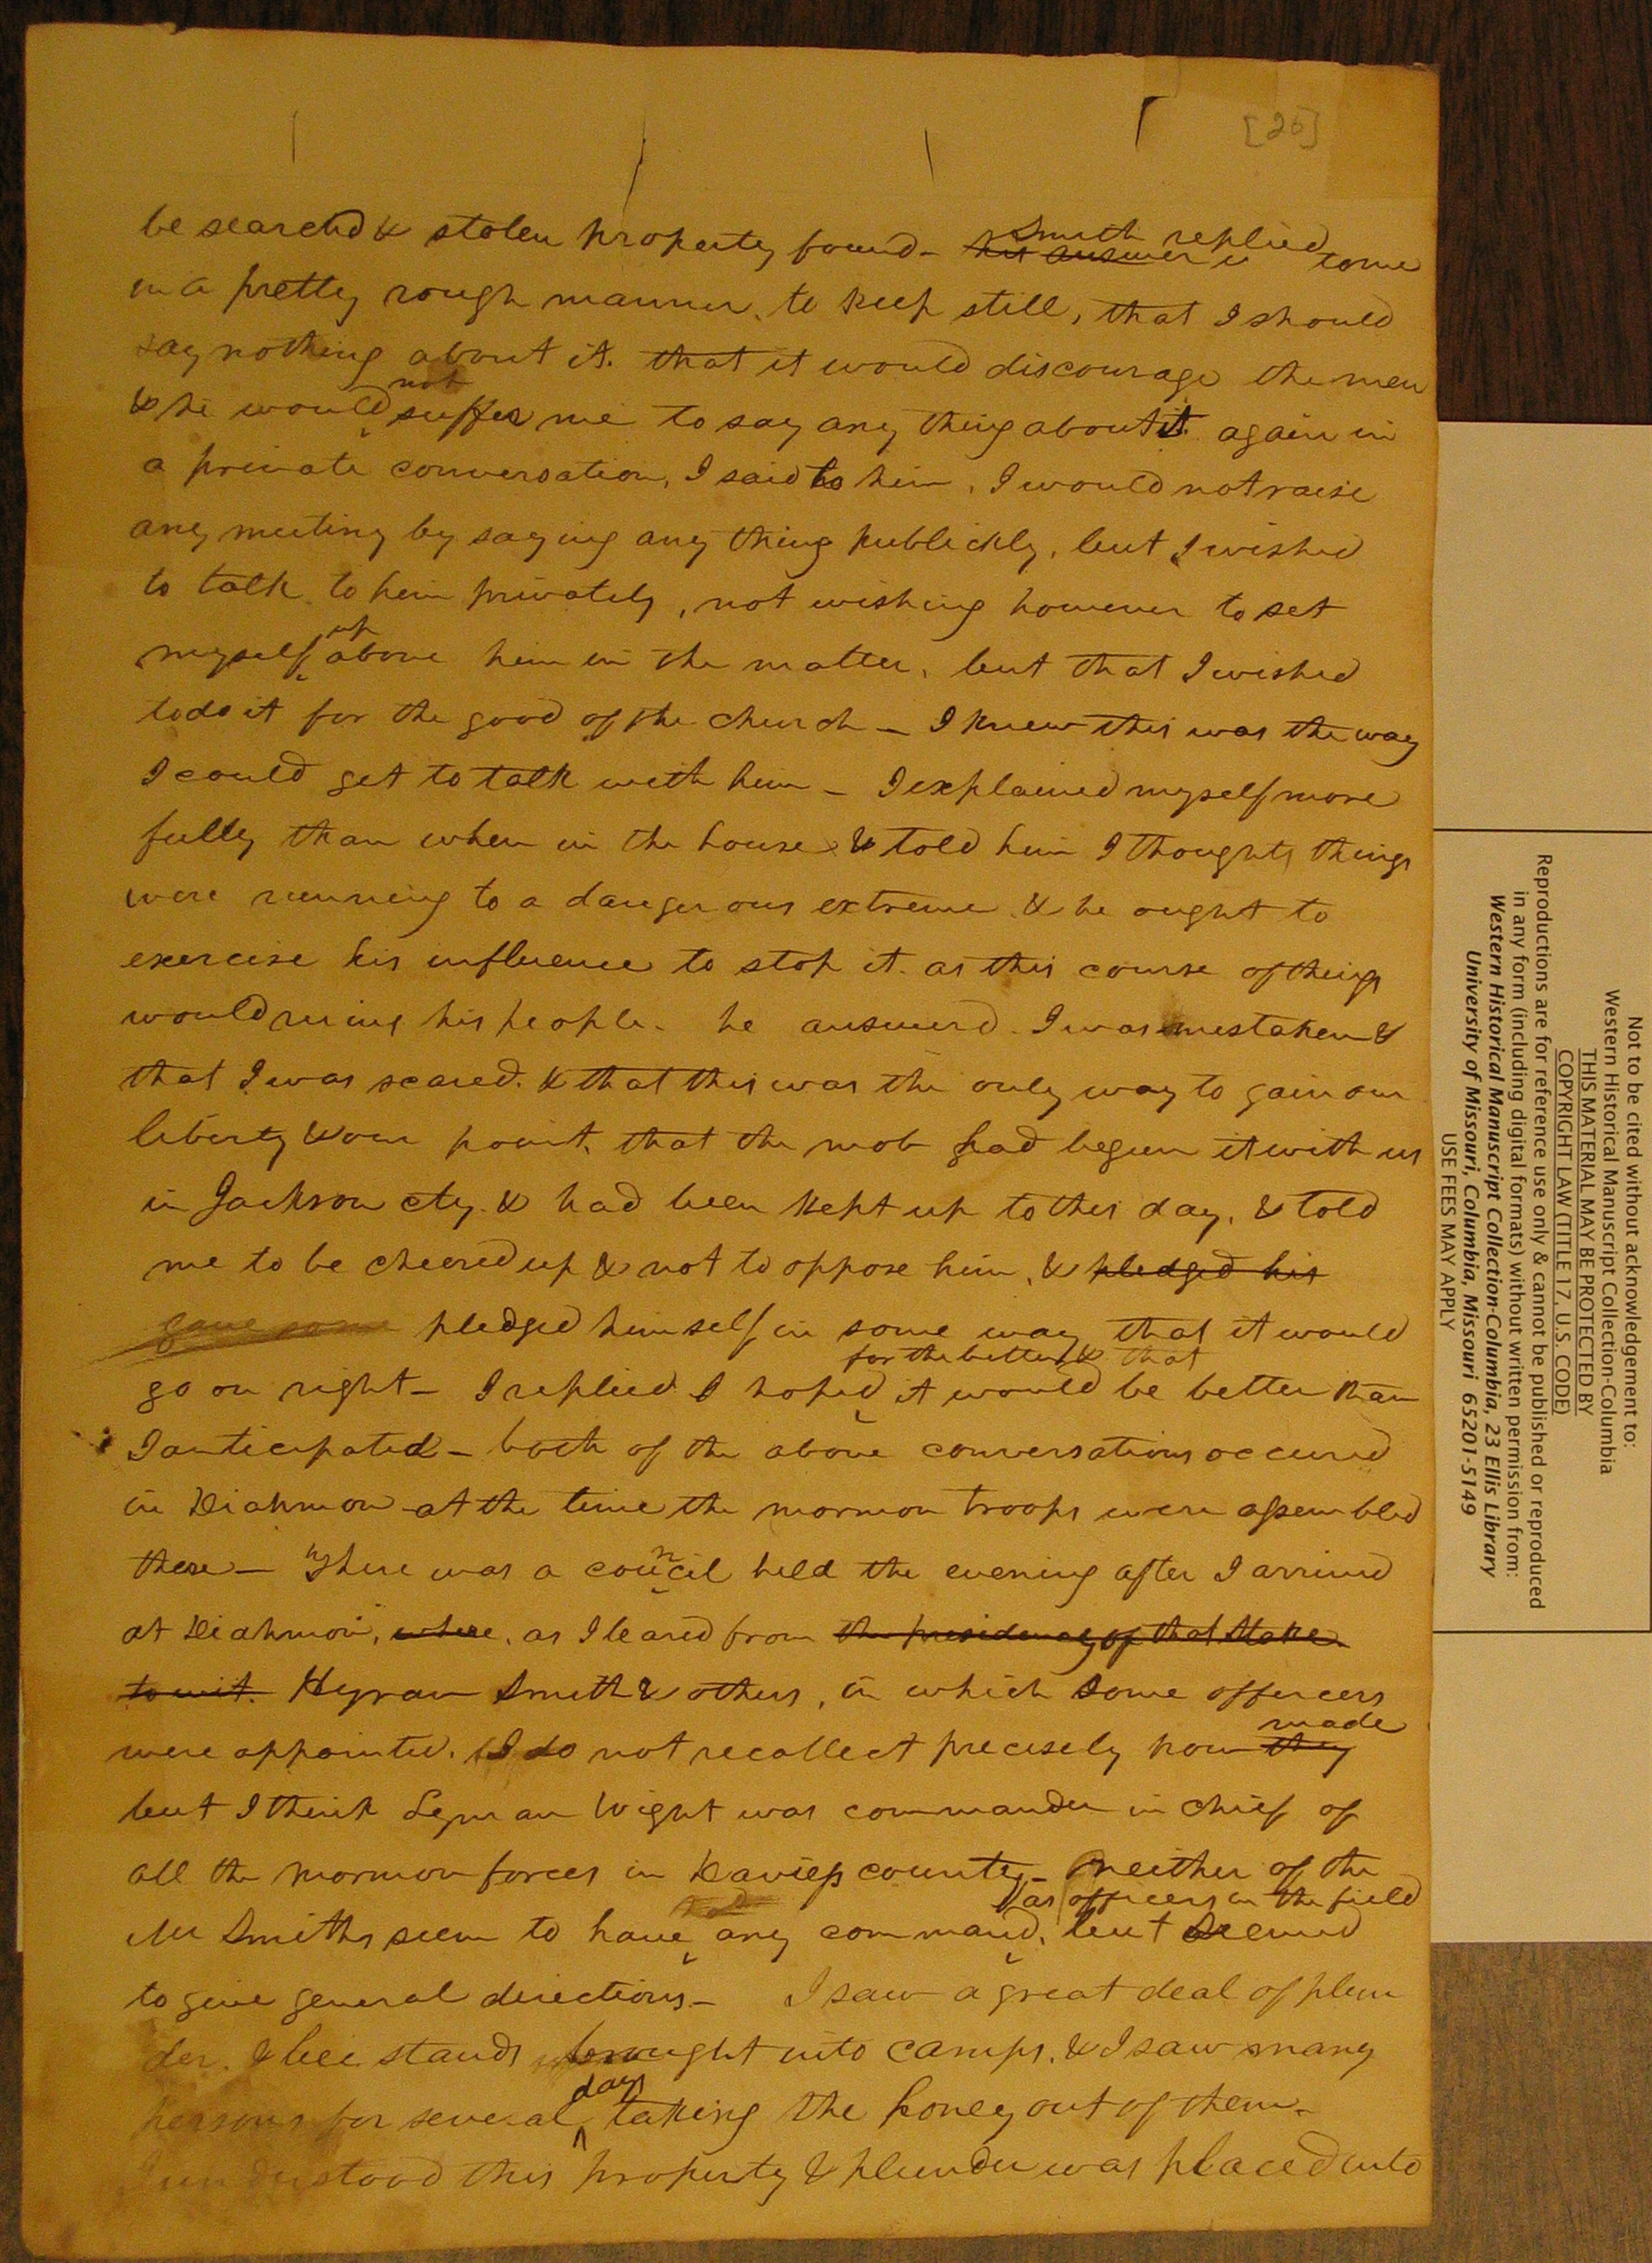 [26]
be searchd & stolen property found - his answer is Smith replied to me
in a pretty rough manner, to keep still, that I should
say nothing about it. that it would discourage the men
& he would not suffer me to say any thing about it. again in
a private conversation, I said to him, I would not raise
any mutiny by saying any thing publickly, but I wished
to talk to him privately, not wishing however to set
myself up above him in the matter, but that I wished
to do it for the good of the church - I knew this was the way
I could get to talk with him - I explained myself more
fully than when in the house & told him I thought things
were running to a dangerous extreme & he ought to
exercise his influence to stop it. as this course of things
would ruing his people. he answerd. I was mistaken &
that I was scared. & that this was the only way to gain our
liberty & our point, that the mob had begun it with us
in Jackson cty. & had been kept up to this day, & told
me to be cheered up & not to oppose him, & pledged his
gave some pledged himself in some way that it would
go on right - I replied I hoped for the better, & that it would be better than
I anticipated - both of the above conversations occured
in Diahmon at the time the mormon troops were assembled
there - There was a council held the evening after I arrived
at Diahmon, where, as I leared from the presidency of that Stake
to wit. Hyram Smith & others, in which some officers
were appointed. I do not recollect precisely how they made
but I think Lyman Wight was commander in chief of
all the mormon forces in Daviess county - neither of the
Mr Smiths seem to have had any command, as officers in the field but seemed
to give general directions - I saw a great deal of plun
der. & bee stands brought into camps. & I saw many
persons for several days taking the honey out of them -
I understood this property & plunder was placed into
Not to be cited without acknowledgement to:
Western Historical Manuscript Collection-Columbia
THIS MATERIAL MAY BE PROTECTED BY
COPYRIGHT LAW (TITLE 17, U.S. CODE)
Reproductions are for reference use only & cannot be published or reproduced
in any form (including digital formats) without written permission from:
Western Historical Manuscript Collection-Columbia, 23 Ellis Library
University of Missouri, Columbia, Missouri 65201-5149
USE FEES MAY APPLY